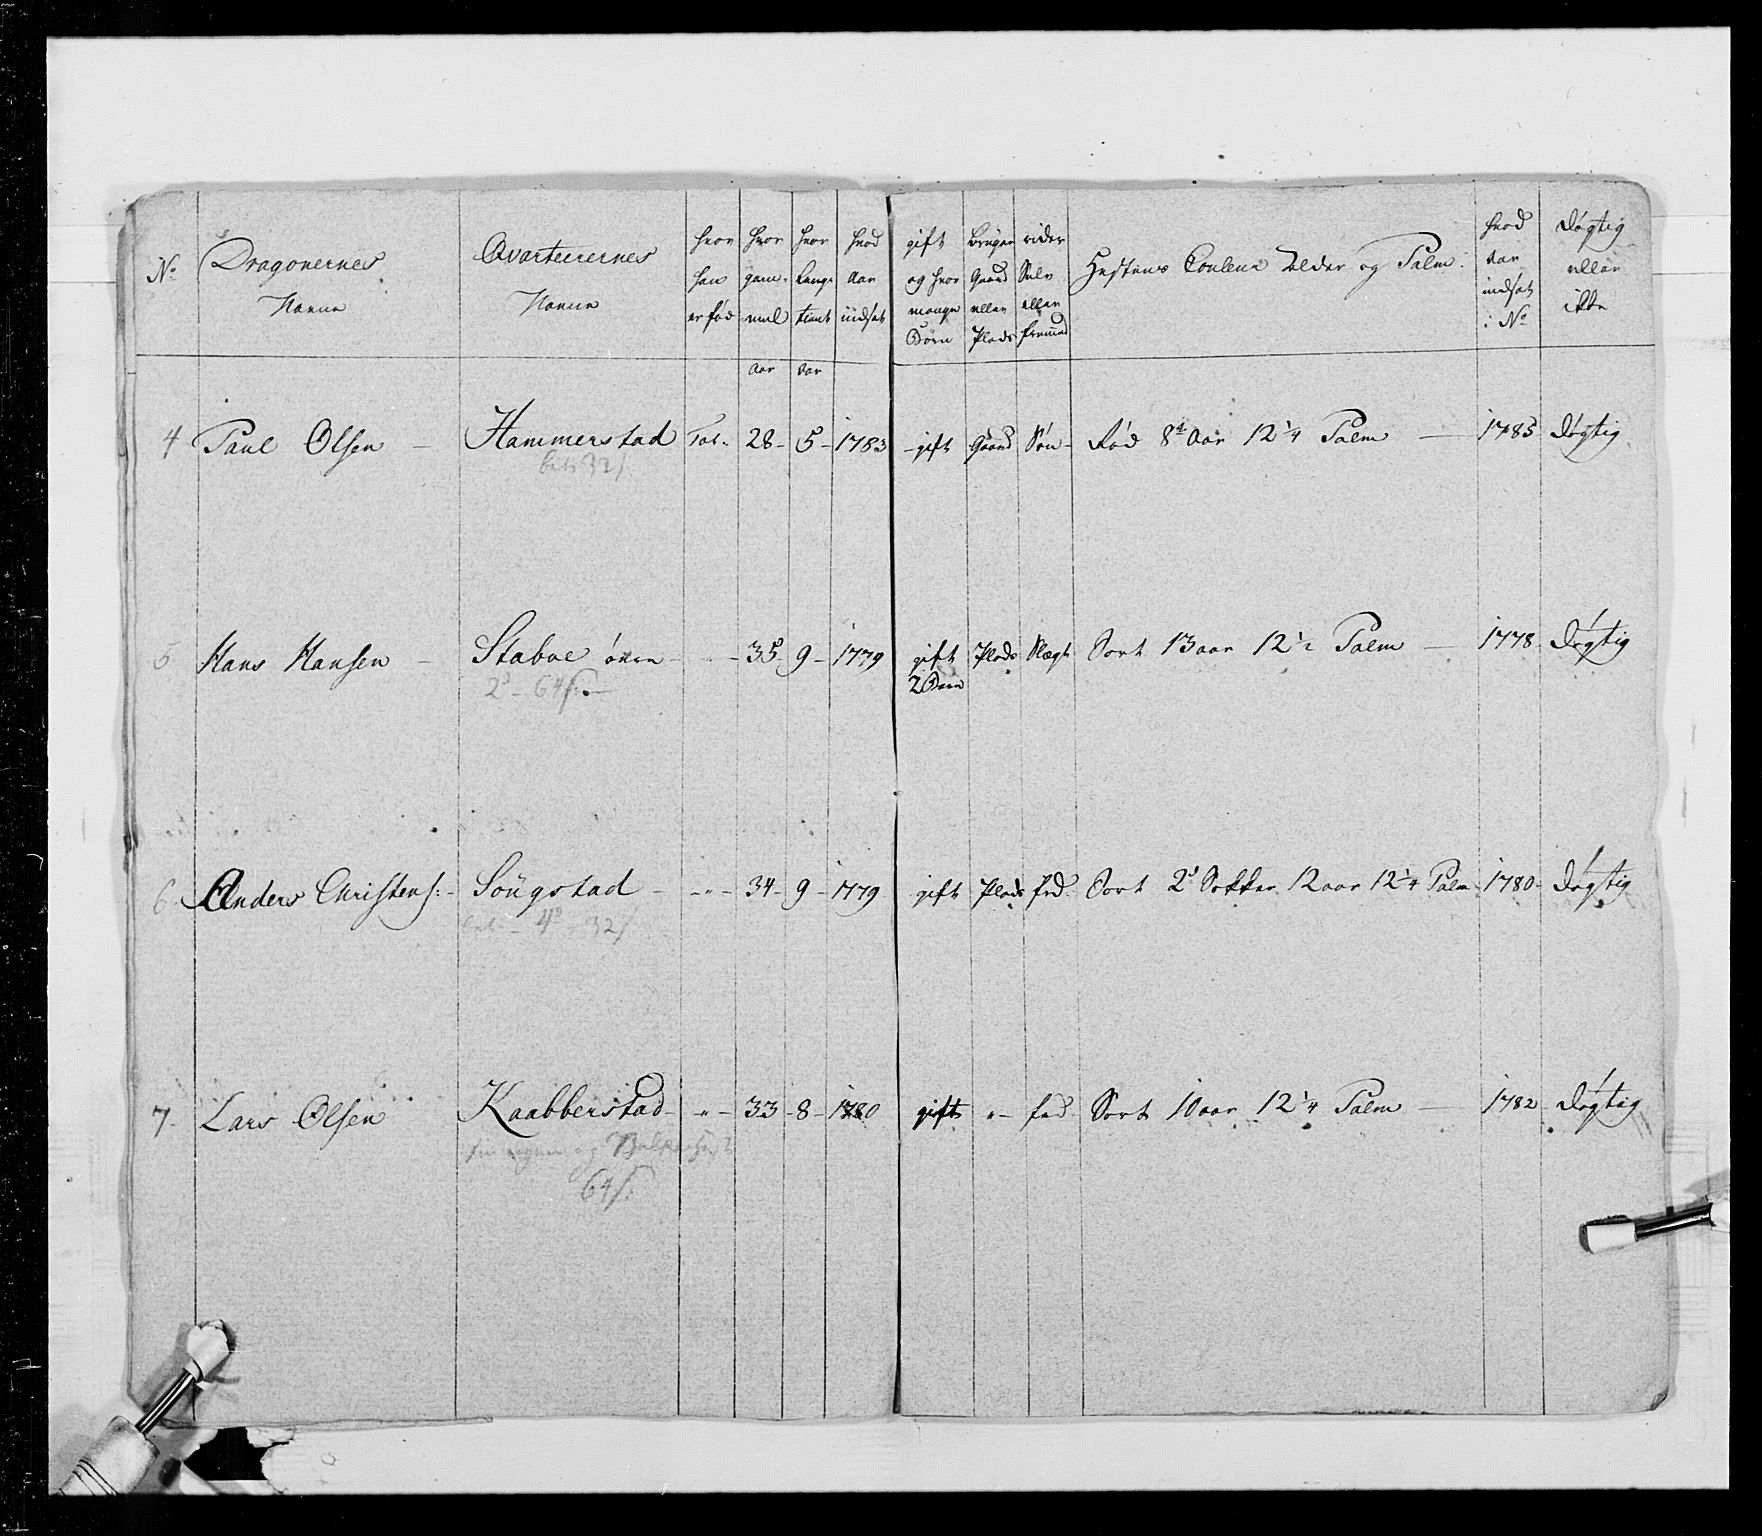 No Dragonernes Navne Qvarteerernes Navne hvor han er fød hvor gam- mel hvor lenge tient hvad aar indsat gift og hvor mange Børn bruger Gaard eller Plads rider Selv eller fremed Hestens Couleur Alder og Palm. hvad aar indsat i No døgtig eller ikke
aar aar
4 Paul Olsen — Hammerstad Tot. 28 - 5 - 1783 gift Gaard Søn - Rød 8te Aar 12 1/4 Palm — 1785 døgtig
bet 32 s.
5 Hans Hansen — Stabue øvre - " - 35 - 9 - 1779 gift Plads Slægt Sort 13 aar 12 1/2 Palm — 1778 døgtig
2 - 64 s. — 2 Børn
6 Anders Christens: - Söugstad - " - 34 - 9 - 1779 gift Plads frd. Sort 2 Sokker 12 aar 12 1/4 Palm 1780 døgtig
bet - 4 - 32 s
7. Lars Olsen Kaabberstad - " - 33 - 8 - 1780 gift " - frd Sort 10 aar 12 1/4 Palm — 1782 døgtig
og
64 s.